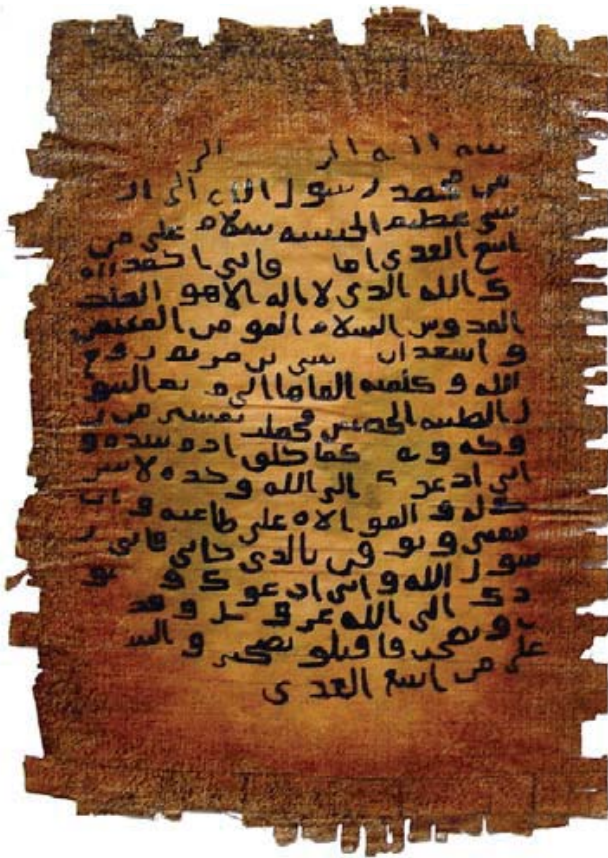 بسم الله الر الر
من محمد رسول الله الى ال
شى عظيم الحبشه سلام على من
اتبع الهدى اما فانى احمد الي
ك الله الذى لا اله الا هو الملك
القدوس السلام المومن المهيمن
و اشهد ان يسى بن مريم روح
الله و كلمته القاها الى مريم البتو
ل الطيبه الحصينه فحملت بعيسى من ر
وحه و كما خلق ادم بيده و
انى ادعوك الى الله وحده لا شر
يك له و الموالاه على طاعته و ان
تتبعنى و توقن بالذى جانى فانى ر
سول الله و انى ادعوك و نو
دك الى الله عز و جل و قد
ت و نصحت فاقبلو نصحى و السل
على من اتبع الهدى